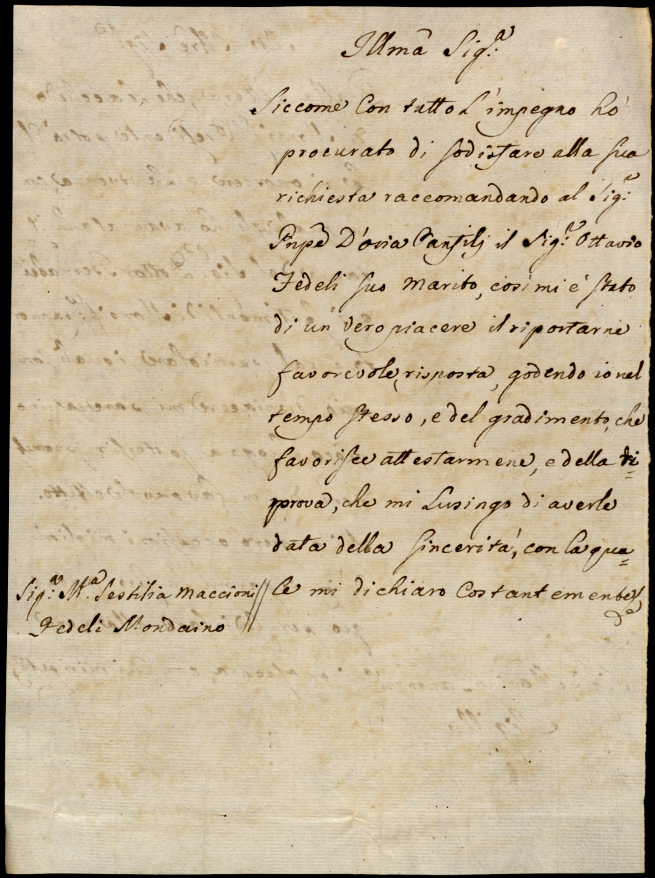 Illma Sig.ra
Siccome Con tutto L'impegno hò
procurato di sodisfare alla sua
richiesta raccomandando al Sig.r
Pnpe D'oria Panfilj il Sig.r Ottavio
Fedeli suo Marito, così mi è stato
di un vero piacere il riportarne
favorevole risposta, godendo io nel
tempo stesso, e del gradimento, che
favorisce attestarmene, e della ri=
prova, che mi Lusingo di averle
data della sincerità, con la qua=
le mi dichiaro Costantemente
Sig.ra M.a Sestilia Maccioni
Fedeli Mondaino